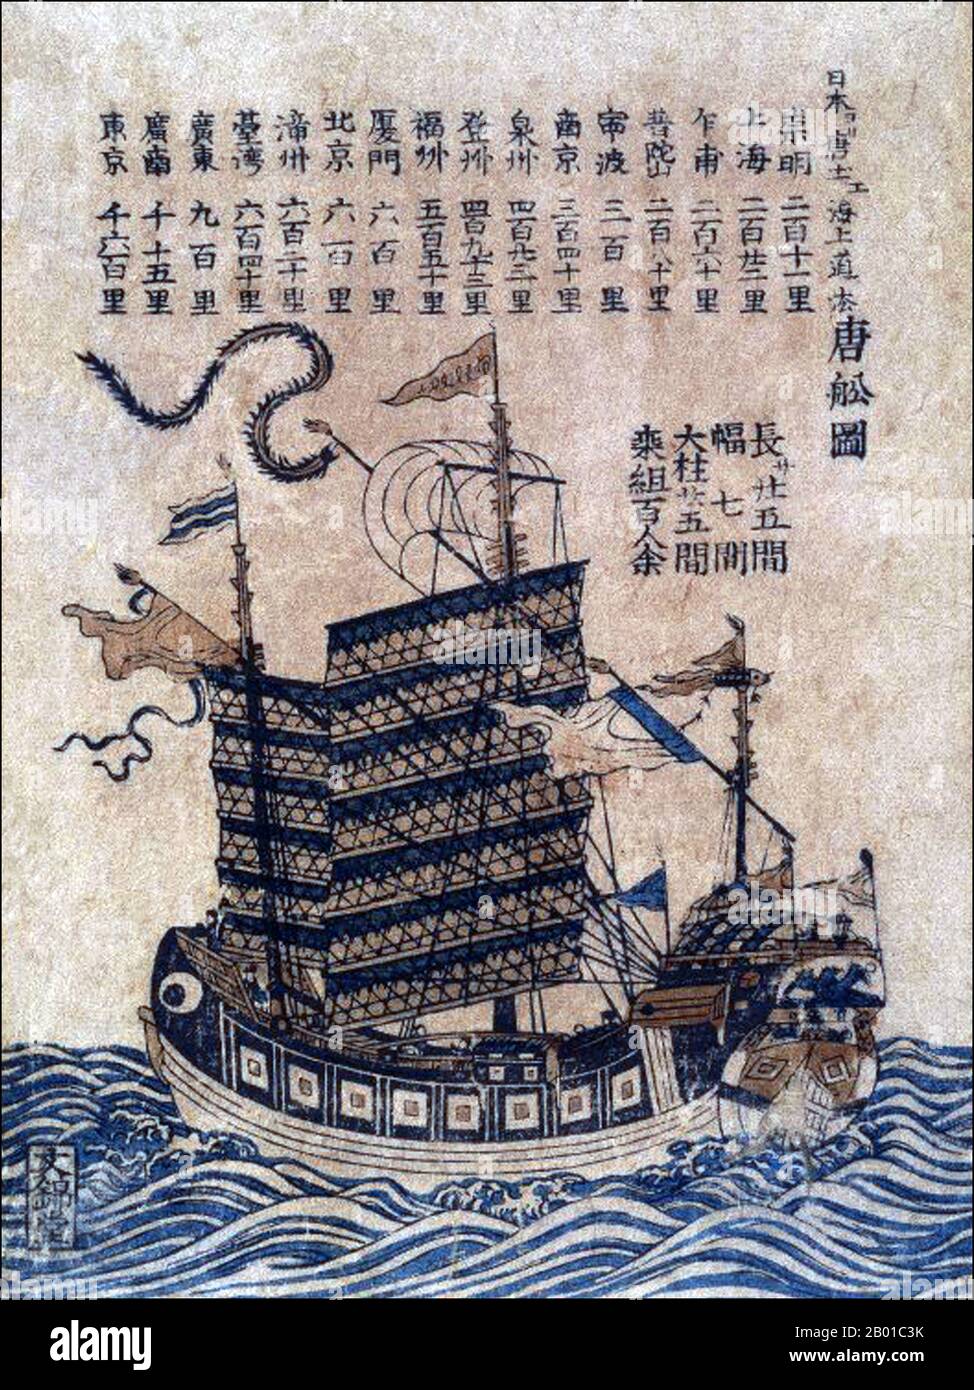 日本ヨリ唐土エ海上直法
唐舩圖
長サ廿五間
幅七間
大柱廿五間
乘組百人余
崇明 二百十里
上海 二百廿里
乍甫 二百六十里
普陀山 二百八十里
寧波 三百里
南京 三百四十里
泉州
登州
福州 五百五十里
厦門 六百里
北京 六百里
漳州 六百二十里
臺湾 六百四十里
廣東 九百里
廣南 千十五里
東京 千六百里
文錦堂
alamy
Image ID: 2B01C3K
www.alamy.com